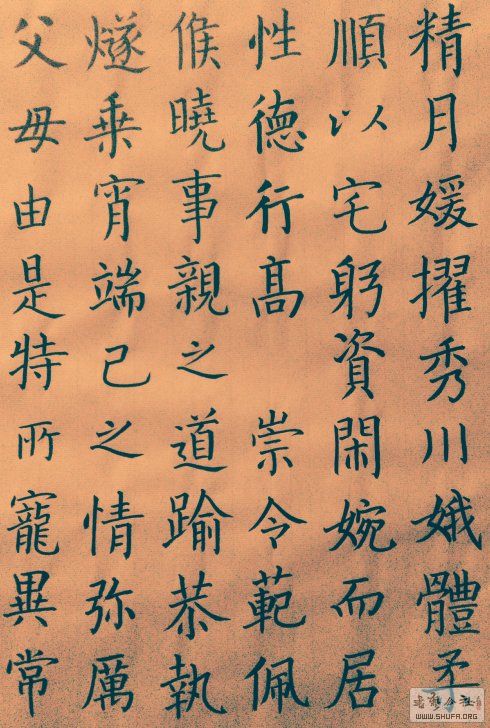 精月媛擢秀川娥體柔
順以宅躬資閑婉而居
性德行高 崇令範佩
候曉事親之道踰恭執
燧乗宵端己之情弥厲
父母由是特所寵異常
WWW.SHUFA.ORG